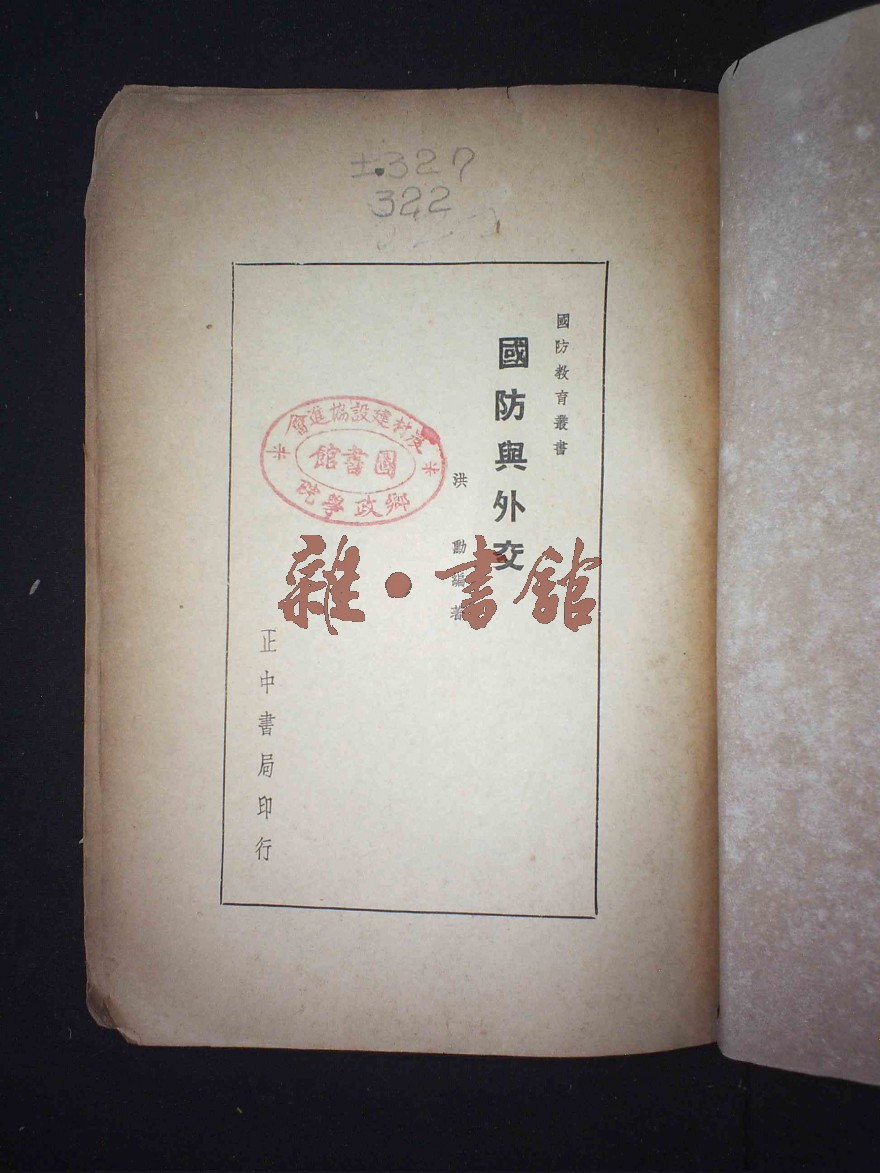 ±.327
322
國防教育叢書
國防與外交
洪勣編著
正中書局印行
農村建設協進會
圖書館
鄉政學院
雜·書館